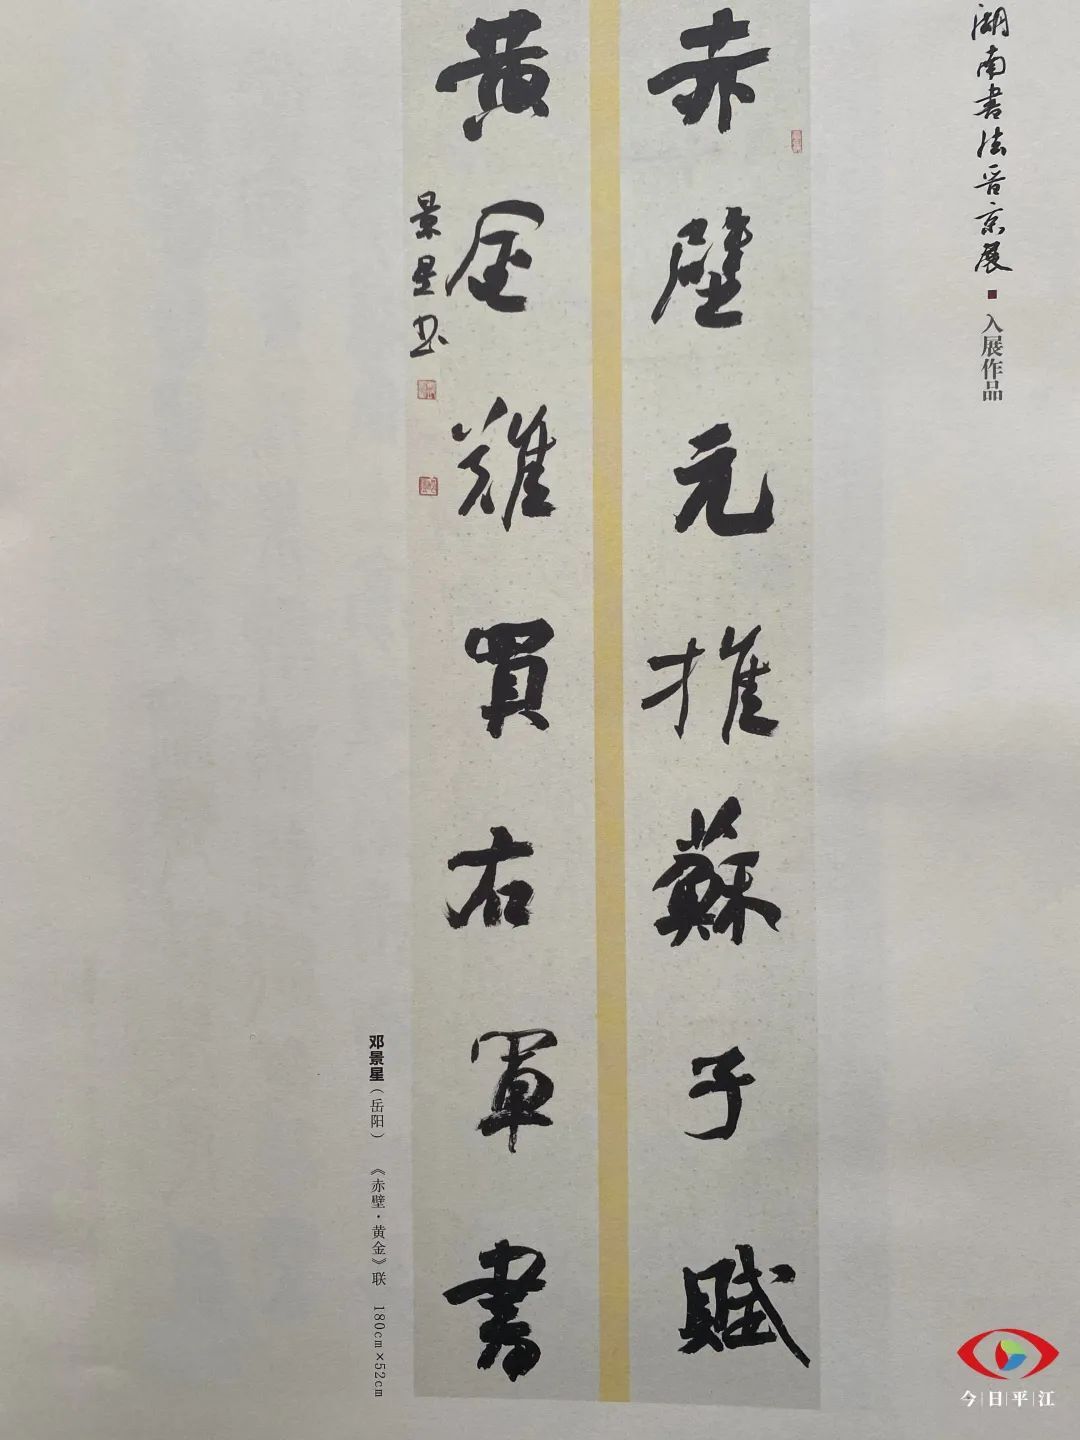 湖南书法晋京展·入展作品
赤壁元推蘇子賦
黄金難買右軍書
景星书
邓景星（岳阳） 《赤壁·黄金》联 180cm×52cm
今日平江